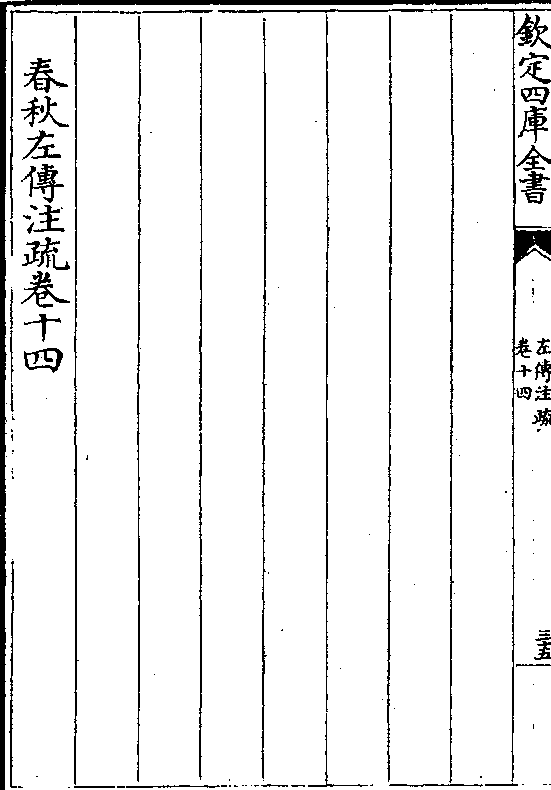 欽定四庫全書
左傳注疏
卷十四
三五
春秋左傳注疏卷十四